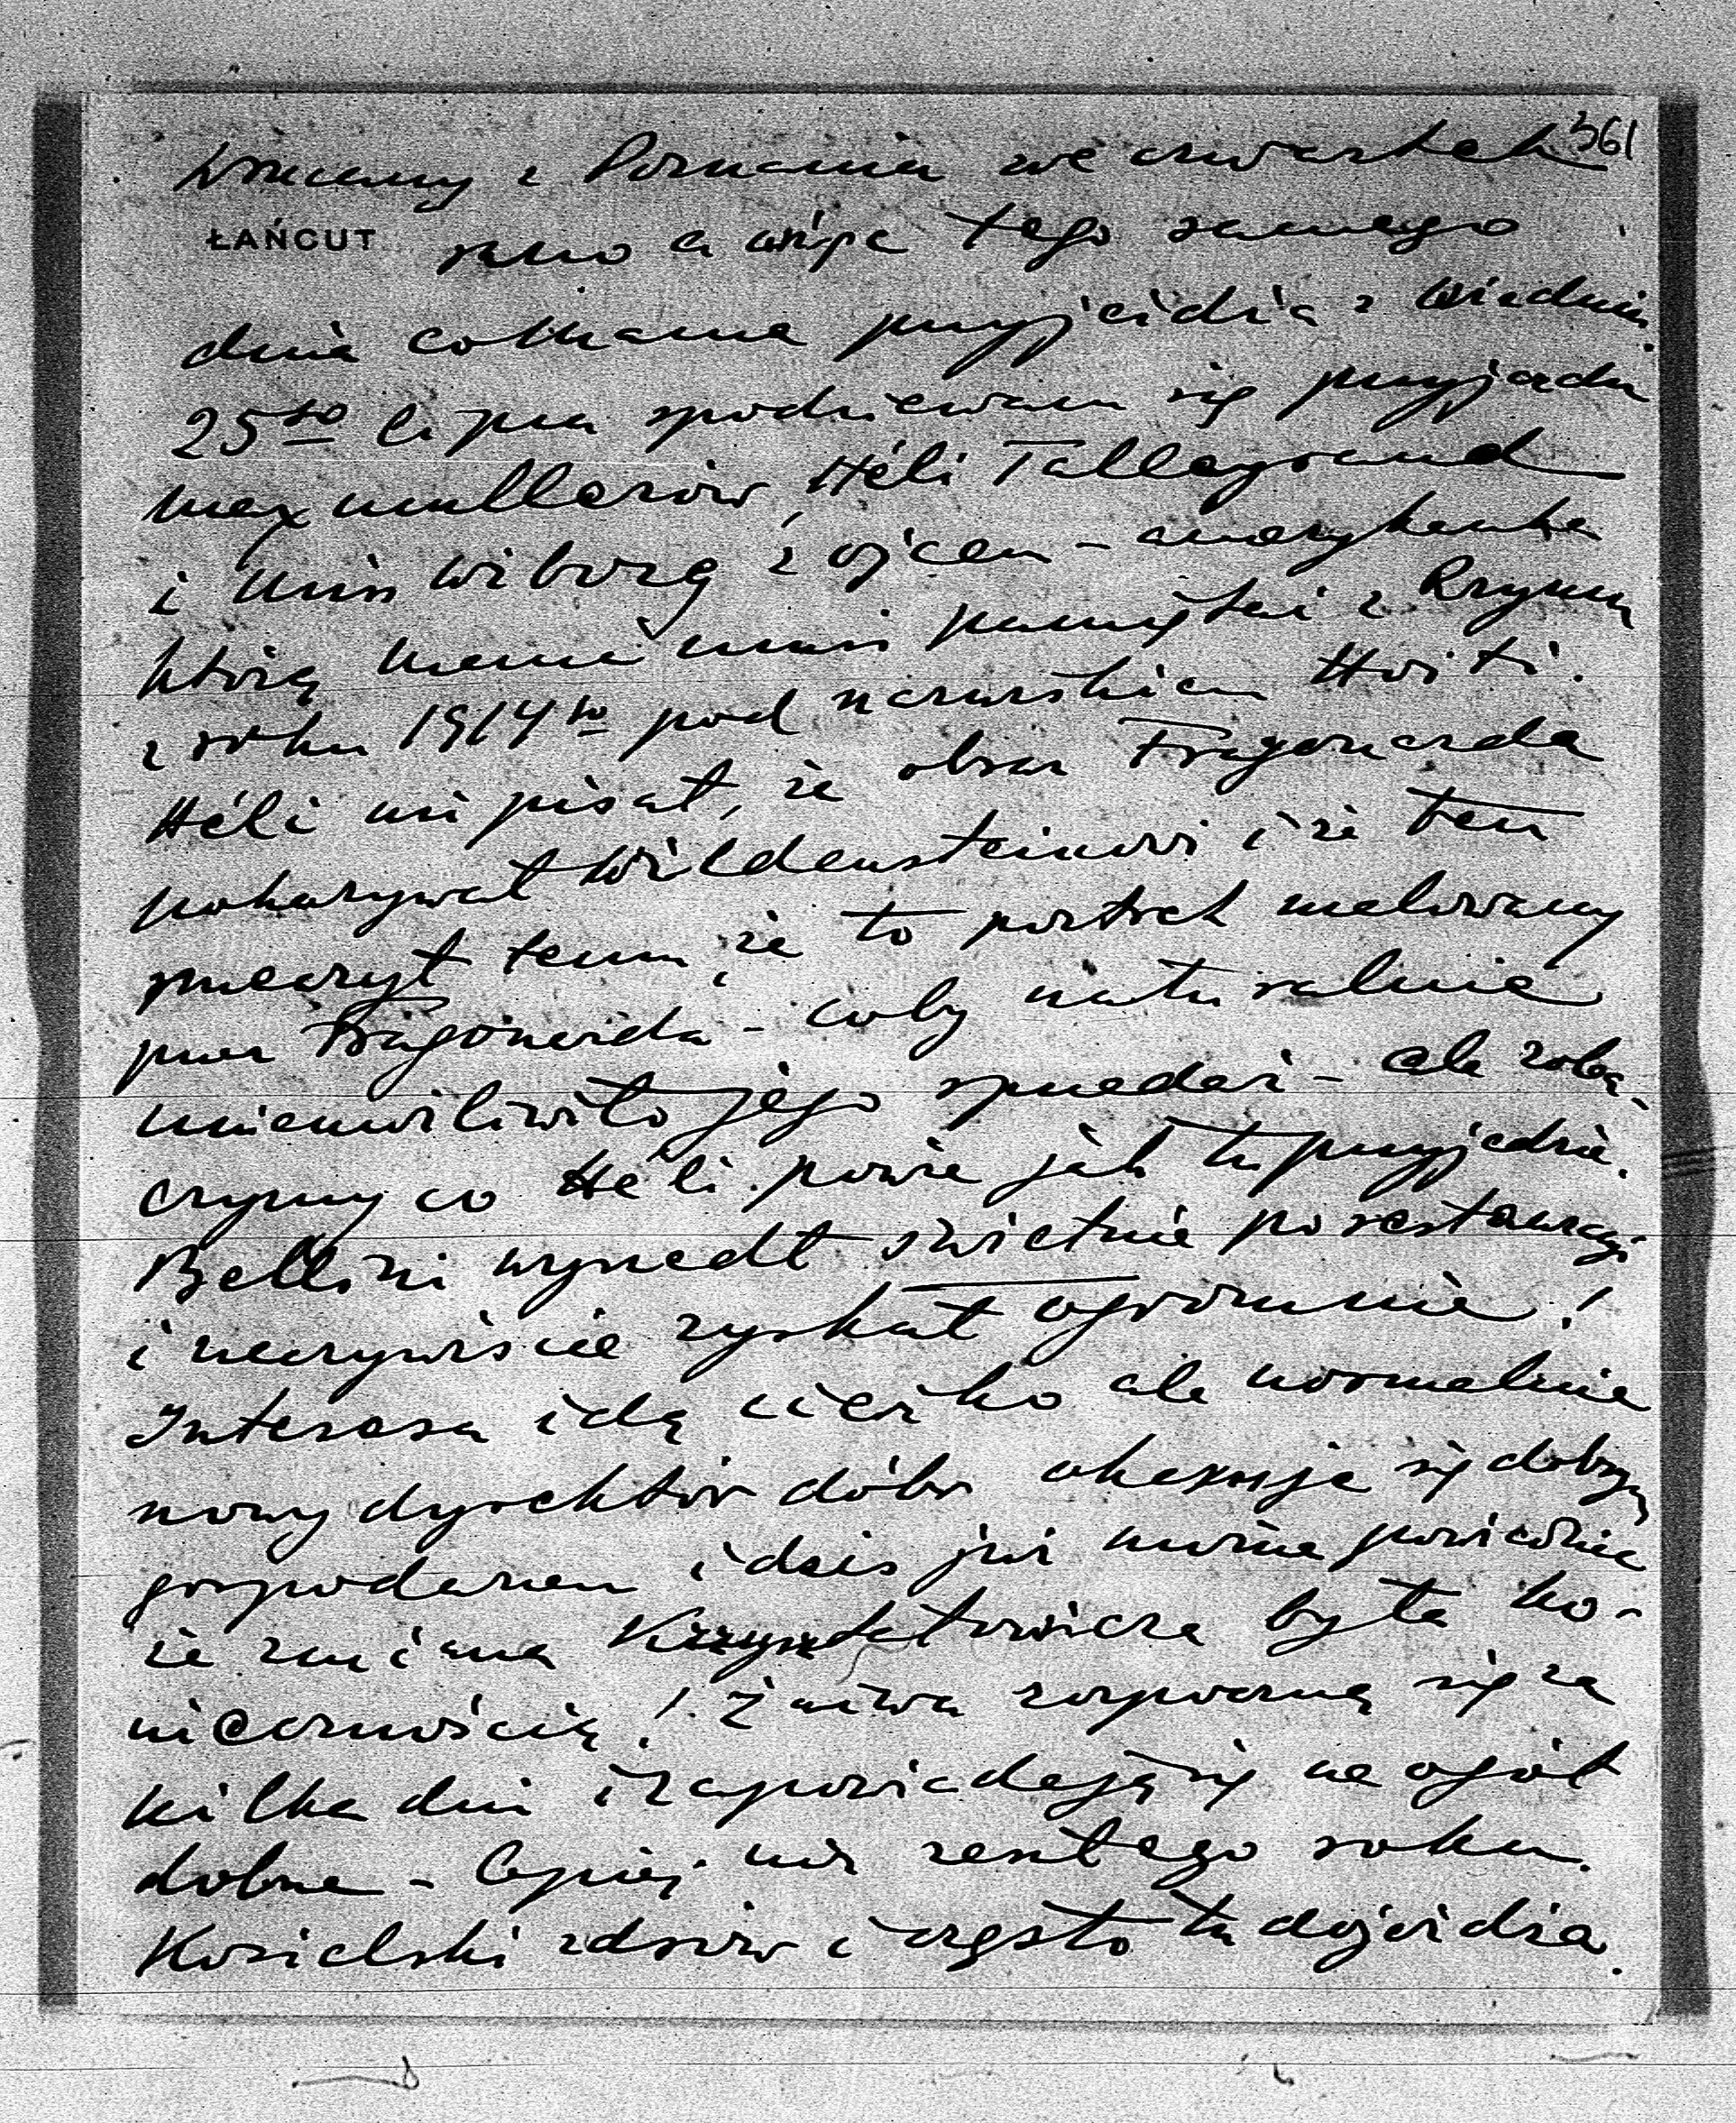 361
wracamy z Poznania we czwartek
ŁAŃCUT
rano a więc tego samego
dnia Colmana przyjeżdża z Wiednia.
25go lipca spodziewam się przyjazdu
Maxmullerów, Héli Talleyrand
i Miss Wiborg z ojcem - amerykanka
którą Mama musi pamiętać z Rzymu
z roku 1914go pod nazwiskiem Hoiti.
Héli mi pisał, że obraz Fragonarda
pokazywał Wildensteinowi i że ten
przeczył temu, że to portret malowany
przez Fragonarda - coby naturalnie
uniemożliwiło jego sprzedaż - ale zoba-
czymy co Héli powie jak tu przyjedzie.
Bellini wyszedł świetnie po restauracji
i rzeczywiście zyskał ogromnie!
Interesa idą ciężko ale normalnie
nowy dyrektór dóbr okazuje się dobrym
gospodarzem i dziś już można powiedzieć
że zmiana Krzysztofowicza była ko-
niecznością! Żniwa rozpoczną się za
kilka dni i zapowiadają się na ogół
dobrze - lepiej niż zeszłego roku.
Kozielski zdrów i często tu dojeżdża.